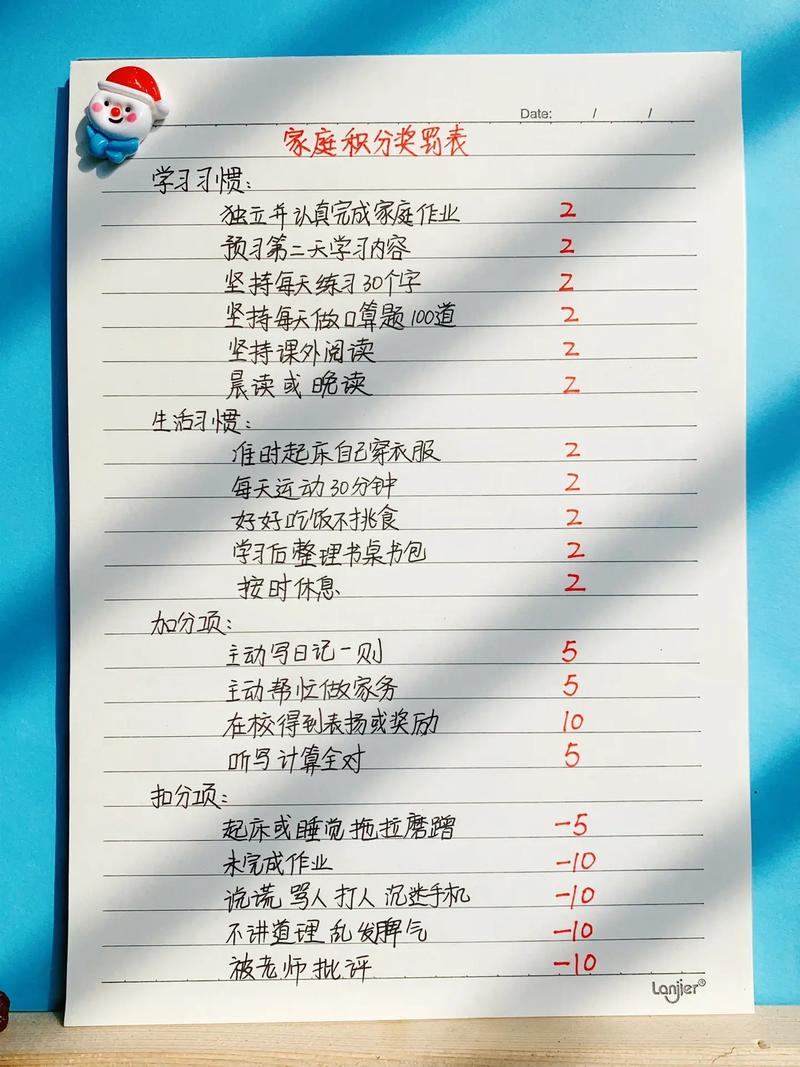 Date: / /
家庭积分奖罚表
学习习惯:
独立并认真完成家庭作业 2
预习第二天学习内容 2
坚持每天练习30个字 2
坚持每天做口算题100道 2
坚持课外阅读 2
晨读或晚读 2
生活习惯:
准时起床自己穿衣服 2
每天运动30分钟 2
好好吃饭不挑食 2
学习后整理书桌书包 2
按时休息 2
加分项:
主动写日记一则 5
主动帮忙做家务 5
在校得到表扬或奖励 10
听写计算全对 5
扣分项:
起床或睡觉拖拉磨蹭 -5
未完成作业 -10
说谎 骂人 打人 沉迷手机 -10
不讲道理 乱发脾气 -10
被老师批评 -10
Lanjier®